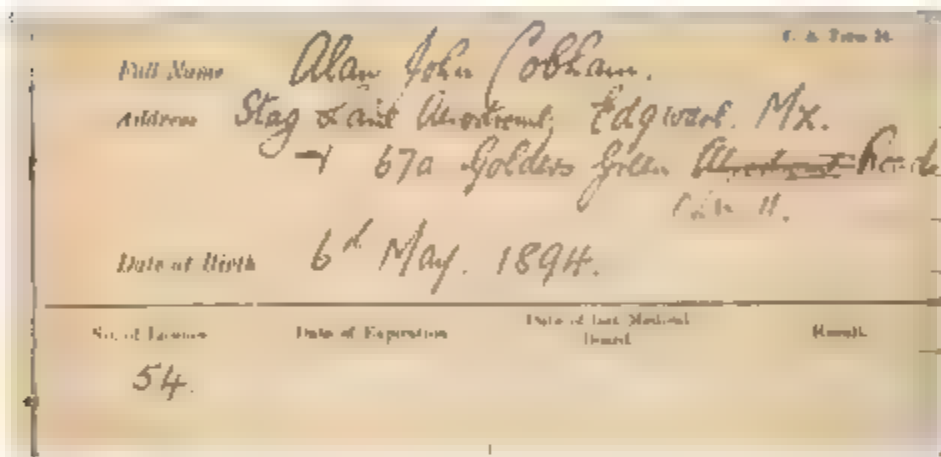 Full Name Alan John Cobham.
Address Stag Lane Aerodrome, Edgware. Mx.
67a Golders Green Road
Date of Birth 6th May. 1894.
No. of Licence Date of Expiration Date of last Medical Board. Result.
54.